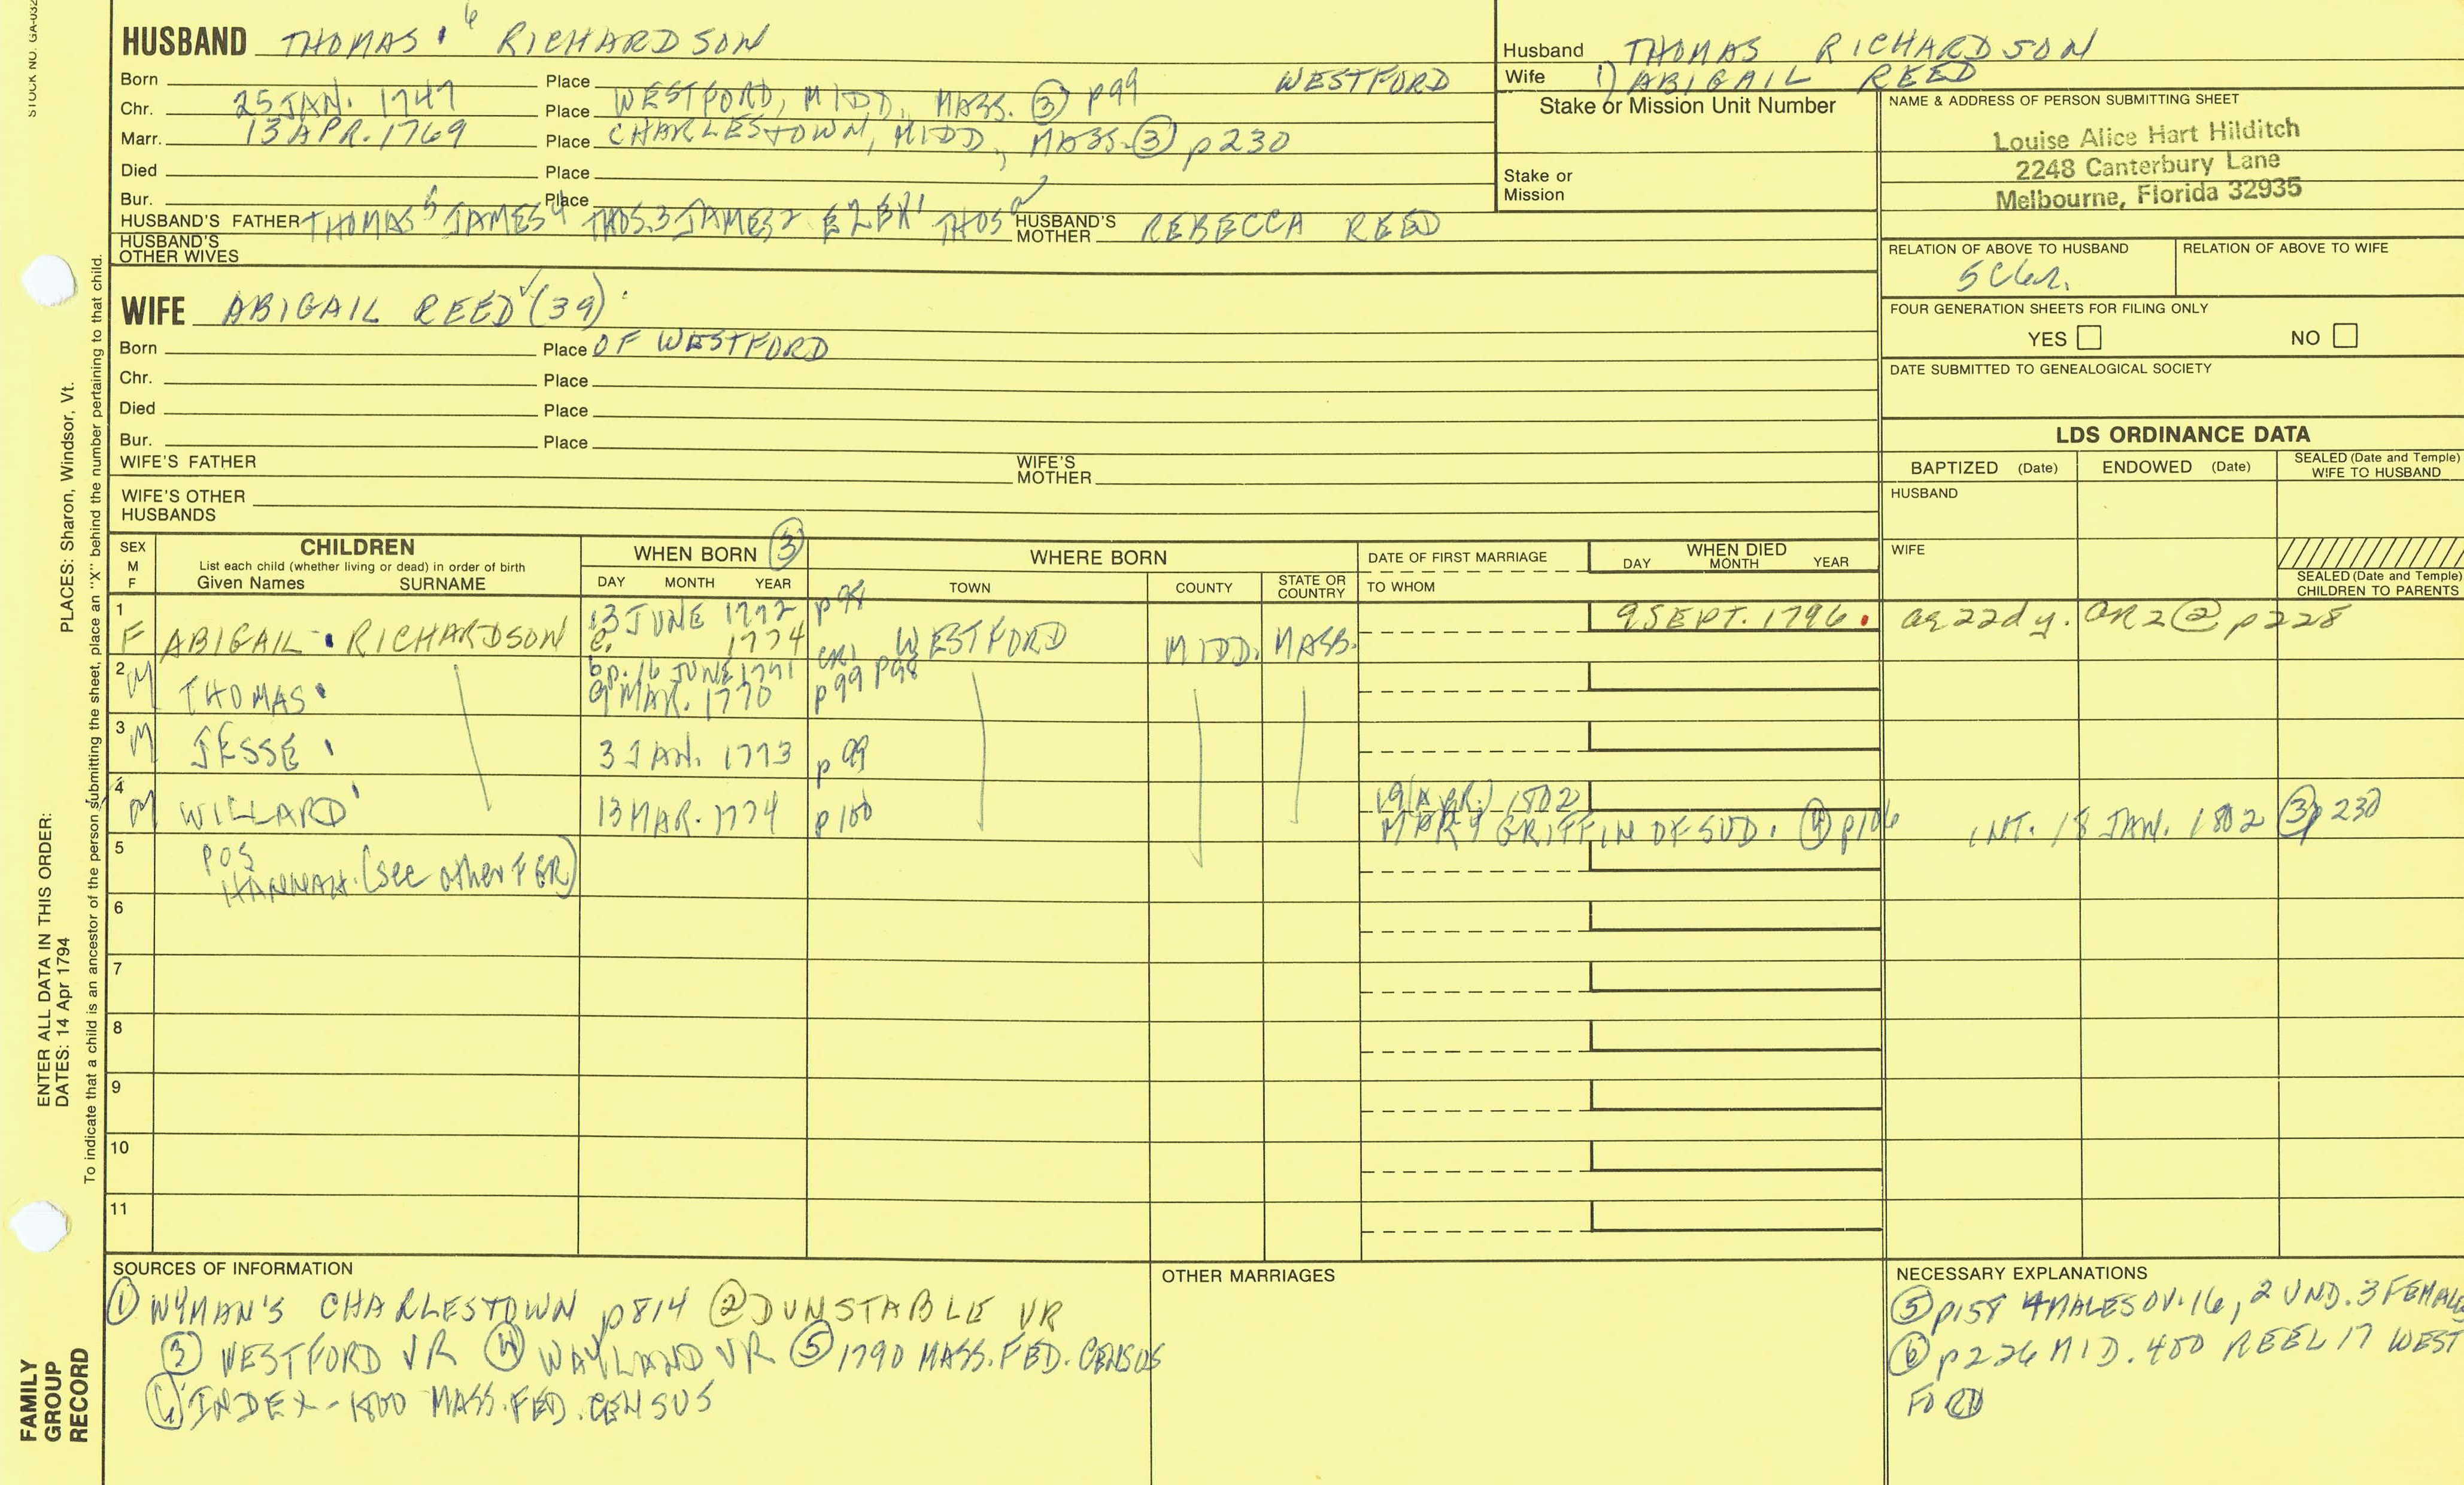 STOCK NO. GA-032
HUSBAND THOMAS 6 RICHARDSON
Born 25 JAN. 1747 Place WESTFORD, MIDD, MASS. ③ p99 WESTFORD
Chr. Place
Marr. 13 APR. 1769 Place CHARLESTOWN, MIDD, MASS. ③ p230
Died Place
Bur. Place
HUSBAND'S FATHER THOMAS 5 JAMES 4 THOS. 3 JAMES 2 EZEK 1 THOS HUSBAND'S MOTHER REBECCA REED
HUSBAND'S OTHER WIVES
WIFE ABIGAIL REED (39)
Born Place OF WESTFORD
Chr. Place
Died Place
Bur. Place
WIFE'S FATHER WIFE'S MOTHER
WIFE'S OTHER HUSBANDS
Husband THOMAS RICHARDSON
Wife 1) ABIGAIL REED
Stake or Mission Unit Number
Stake or Mission
NAME & ADDRESS OF PERSON SUBMITTING SHEET
Louise Alice Hart Hilditch
2248 Canterbury Lane
Melbourne, Florida 32935
RELATION OF ABOVE TO HUSBAND RELATION OF ABOVE TO WIFE
FOUR GENERATION SHEETS FOR FILING ONLY
YES NO
DATE SUBMITTED TO GENEALOGICAL SOCIETY
LDS ORDINANCE DATA
BAPTIZED (Date) ENDOWED (Date) SEALED (Date and Temple) WIFE TO HUSBAND
HUSBAND
WIFE
SEALED (Date and Temple) CHILDREN TO PARENTS
SEX M F
CHILDREN
List each child (whether living or dead) in order of birth
Given Names SURNAME
WHEN BORN ③
DAY MONTH YEAR
WHERE BORN
TOWN COUNTY STATE OR COUNTRY
DATE OF FIRST MARRIAGE
TO WHOM
WHEN DIED
DAY MONTH YEAR
1 13 JUNE 1772 p98 9 SEPT. 1796. ag 22d y. GR2 ② p228
F ABIGAIL RICHARDSON c. 1774 WESTFORD MIDD. MASS.
2 bp. 16 JUNE 1771 CR1 p98
M THOMAS 9 MAR. 1770 p99
3
M JESSE 3 JAN. 1773 p99
4 19 (APR.) 1802
M WILLARD 13 MAR. 1774 p100 MARY GRIFFIN OF SUD. ④ p106 INT. 18 JAN. 1802 ③ p230
5 POS
HANNAH. (see other FGR)
6
7
8
9
10
11
SOURCES OF INFORMATION
① WYMAN'S CHARLESTOWN p814 ② DUNSTABLE VR
③ WESTFORD VR ④ WAYLAND VR ⑤ 1790 MASS. FED. CENSUS
⑥ INDEX - 1800 MASS. FED. CENSUS
OTHER MARRIAGES
NECESSARY EXPLANATIONS
⑤ p158 4 MALES OV. 16, 2 UND. 3 FEMALE
⑥ p226 MID. 400 REEL 17 WEST
FORD
PLACES: Sharon, Windsor, Vt.
To indicate that a child is an ancestor of the person submitting the sheet, place an "X" behind the number pertaining to that child.
ENTER ALL DATA IN THIS ORDER:
DATES: 14 Apr 1794
FAMILY
GROUP
RECORD